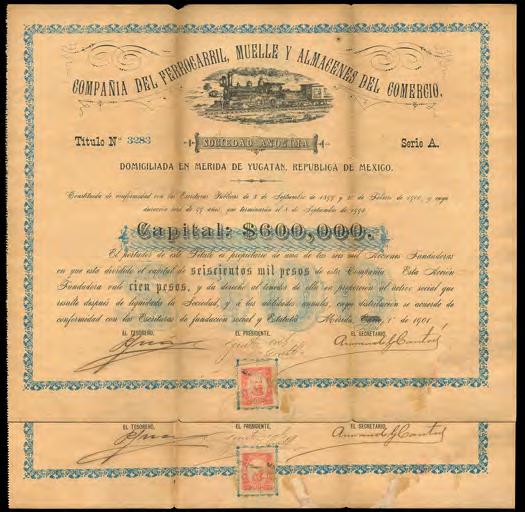 COMPAÑIA DEL FERROCARRIL, MUELLE Y ALMACENES DEL COMERCIO.
Titulo Nº 3283
SOCIEDAD ANONIMA
Serie A.
DOMICILIADA EN MERIDA DE YUCATAN, REPUBLICA DE MEXICO.
Constituida de conformidad con las Escrituras Públicas de 3 de Septiembre de y de Febrero de y cuya
duración será de 99 años, que terminarán el de Septiembre de
Capital: $600,000.
El portador de este Titulo es propietario de una de las seis mil Acciones Fundadoras
en que está dividido el capital de seiscientos mil pesos de esta Compañía Esta Acción
Fundadora vale cien pesos, y da derecho al tenedor de ella en proporción del activo social que
resulta después de liquidada la Sociedad, y á las utilidades anuales, cuya distribución se acuerde de
conformidad con las Escrituras de fundación social y Estatutos Mérida, 1º de 1901.
EL TESORERO. EL PRESIDENTE. EL SECRETARIO.
EL TESORERO. EL PRESIDENTE. EL SECRETARIO.